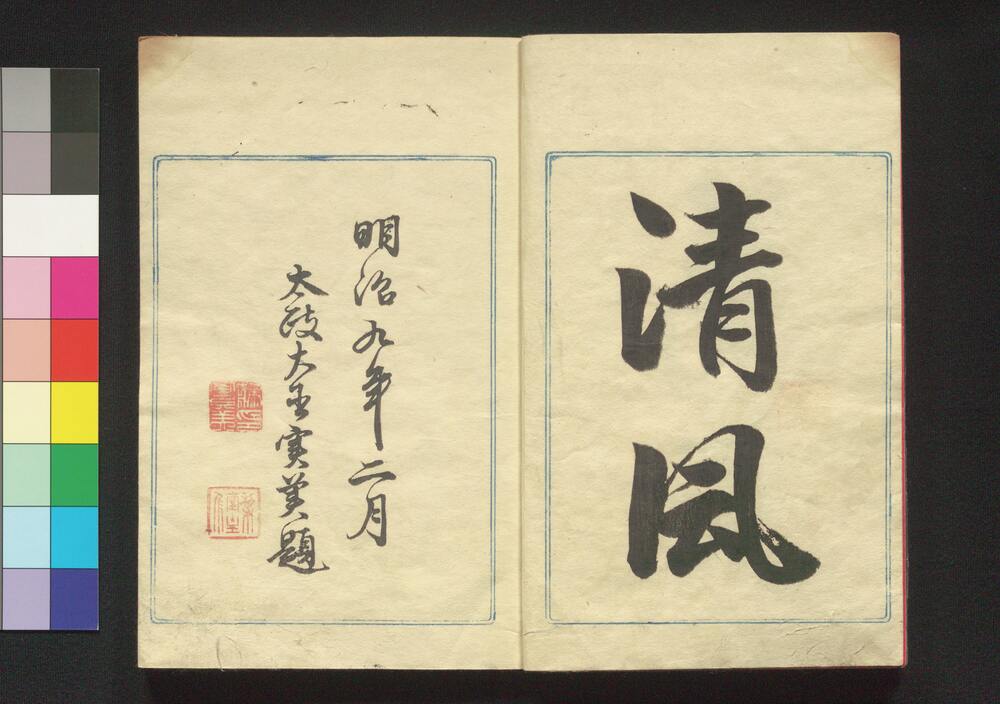 清風
明治九年二月
太政大臣実美題